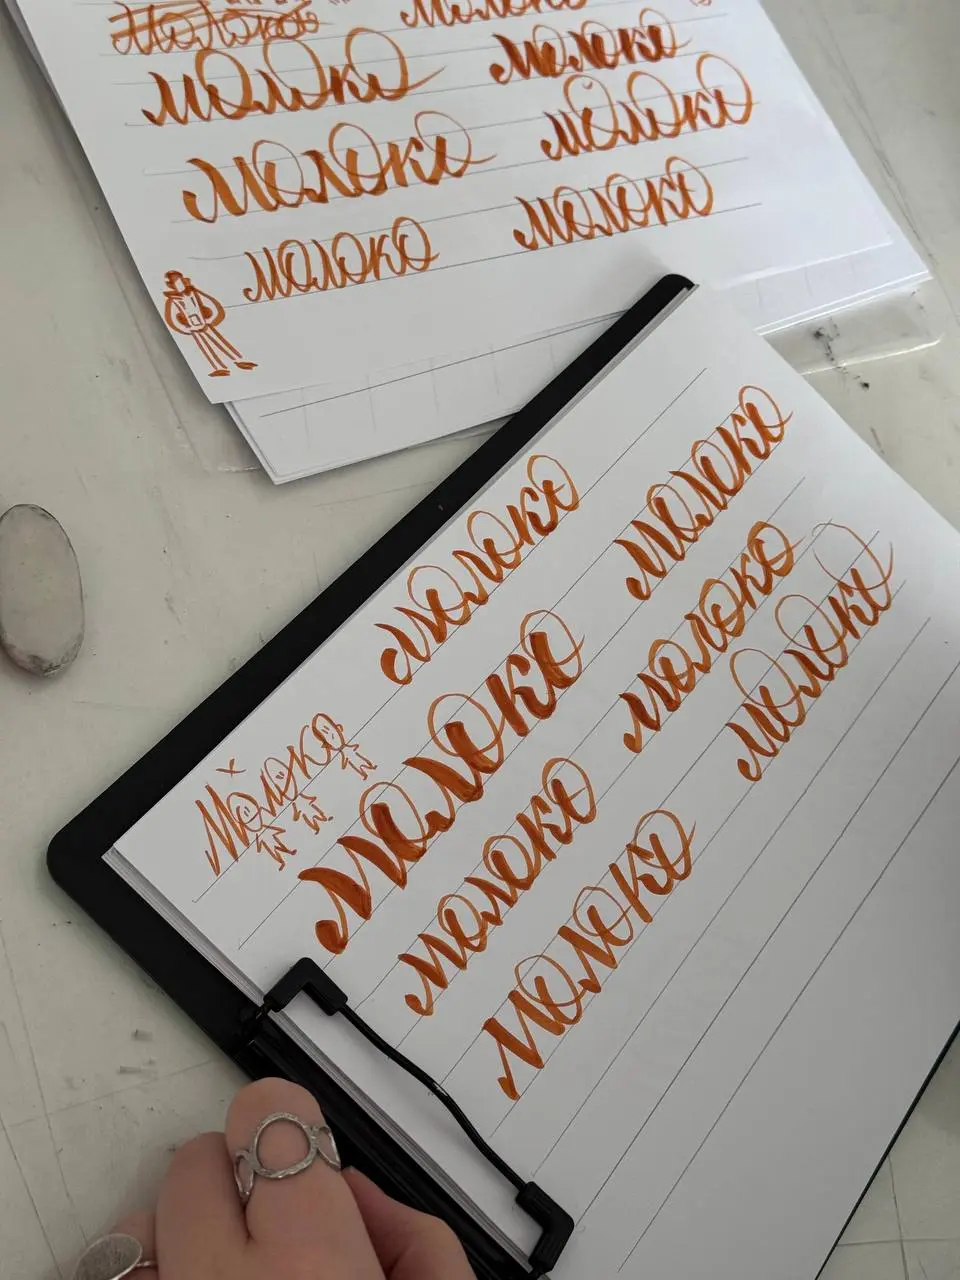 Молоко Молоко
Молоко Молоко
Молоко Молоко
Молоко Молоко
Молоко
Молоко Молоко
Молоко Молоко
Молоко Молоко
Молоко Молоко